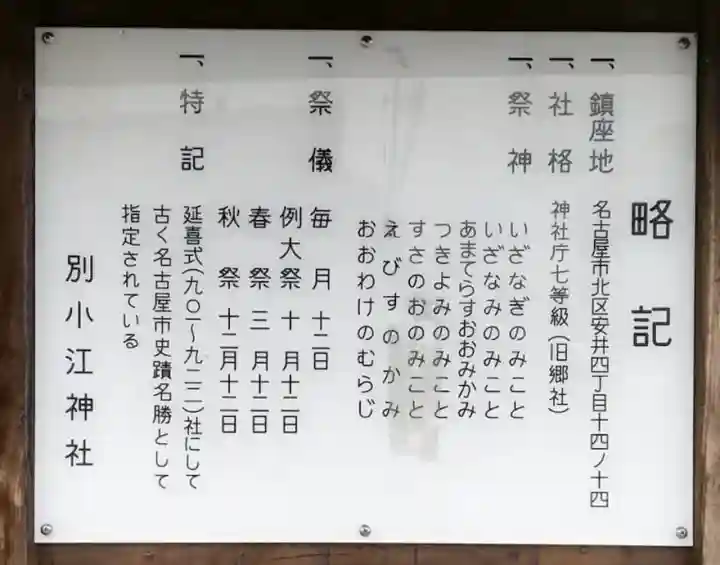 略記
一、鎮座地 名古屋市北区安井四丁目十四ノ十四
一、社格 神社庁七等級(旧郷社)
一、祭神 いざなぎのみこと
いざなみのみこと
あまてらすおおみかみ
つきよみのみこと
すさのおのみこと
えびすのかみ
おおわけのむらじ
一、祭儀 毎月十二日
例大祭 十月十二日
春祭 三月十二日
秋祭 十二月十二日
一、特記 延喜式(九〇一~九二二)社にして
古く名古屋市史蹟名勝として
指定されている
別小江神社